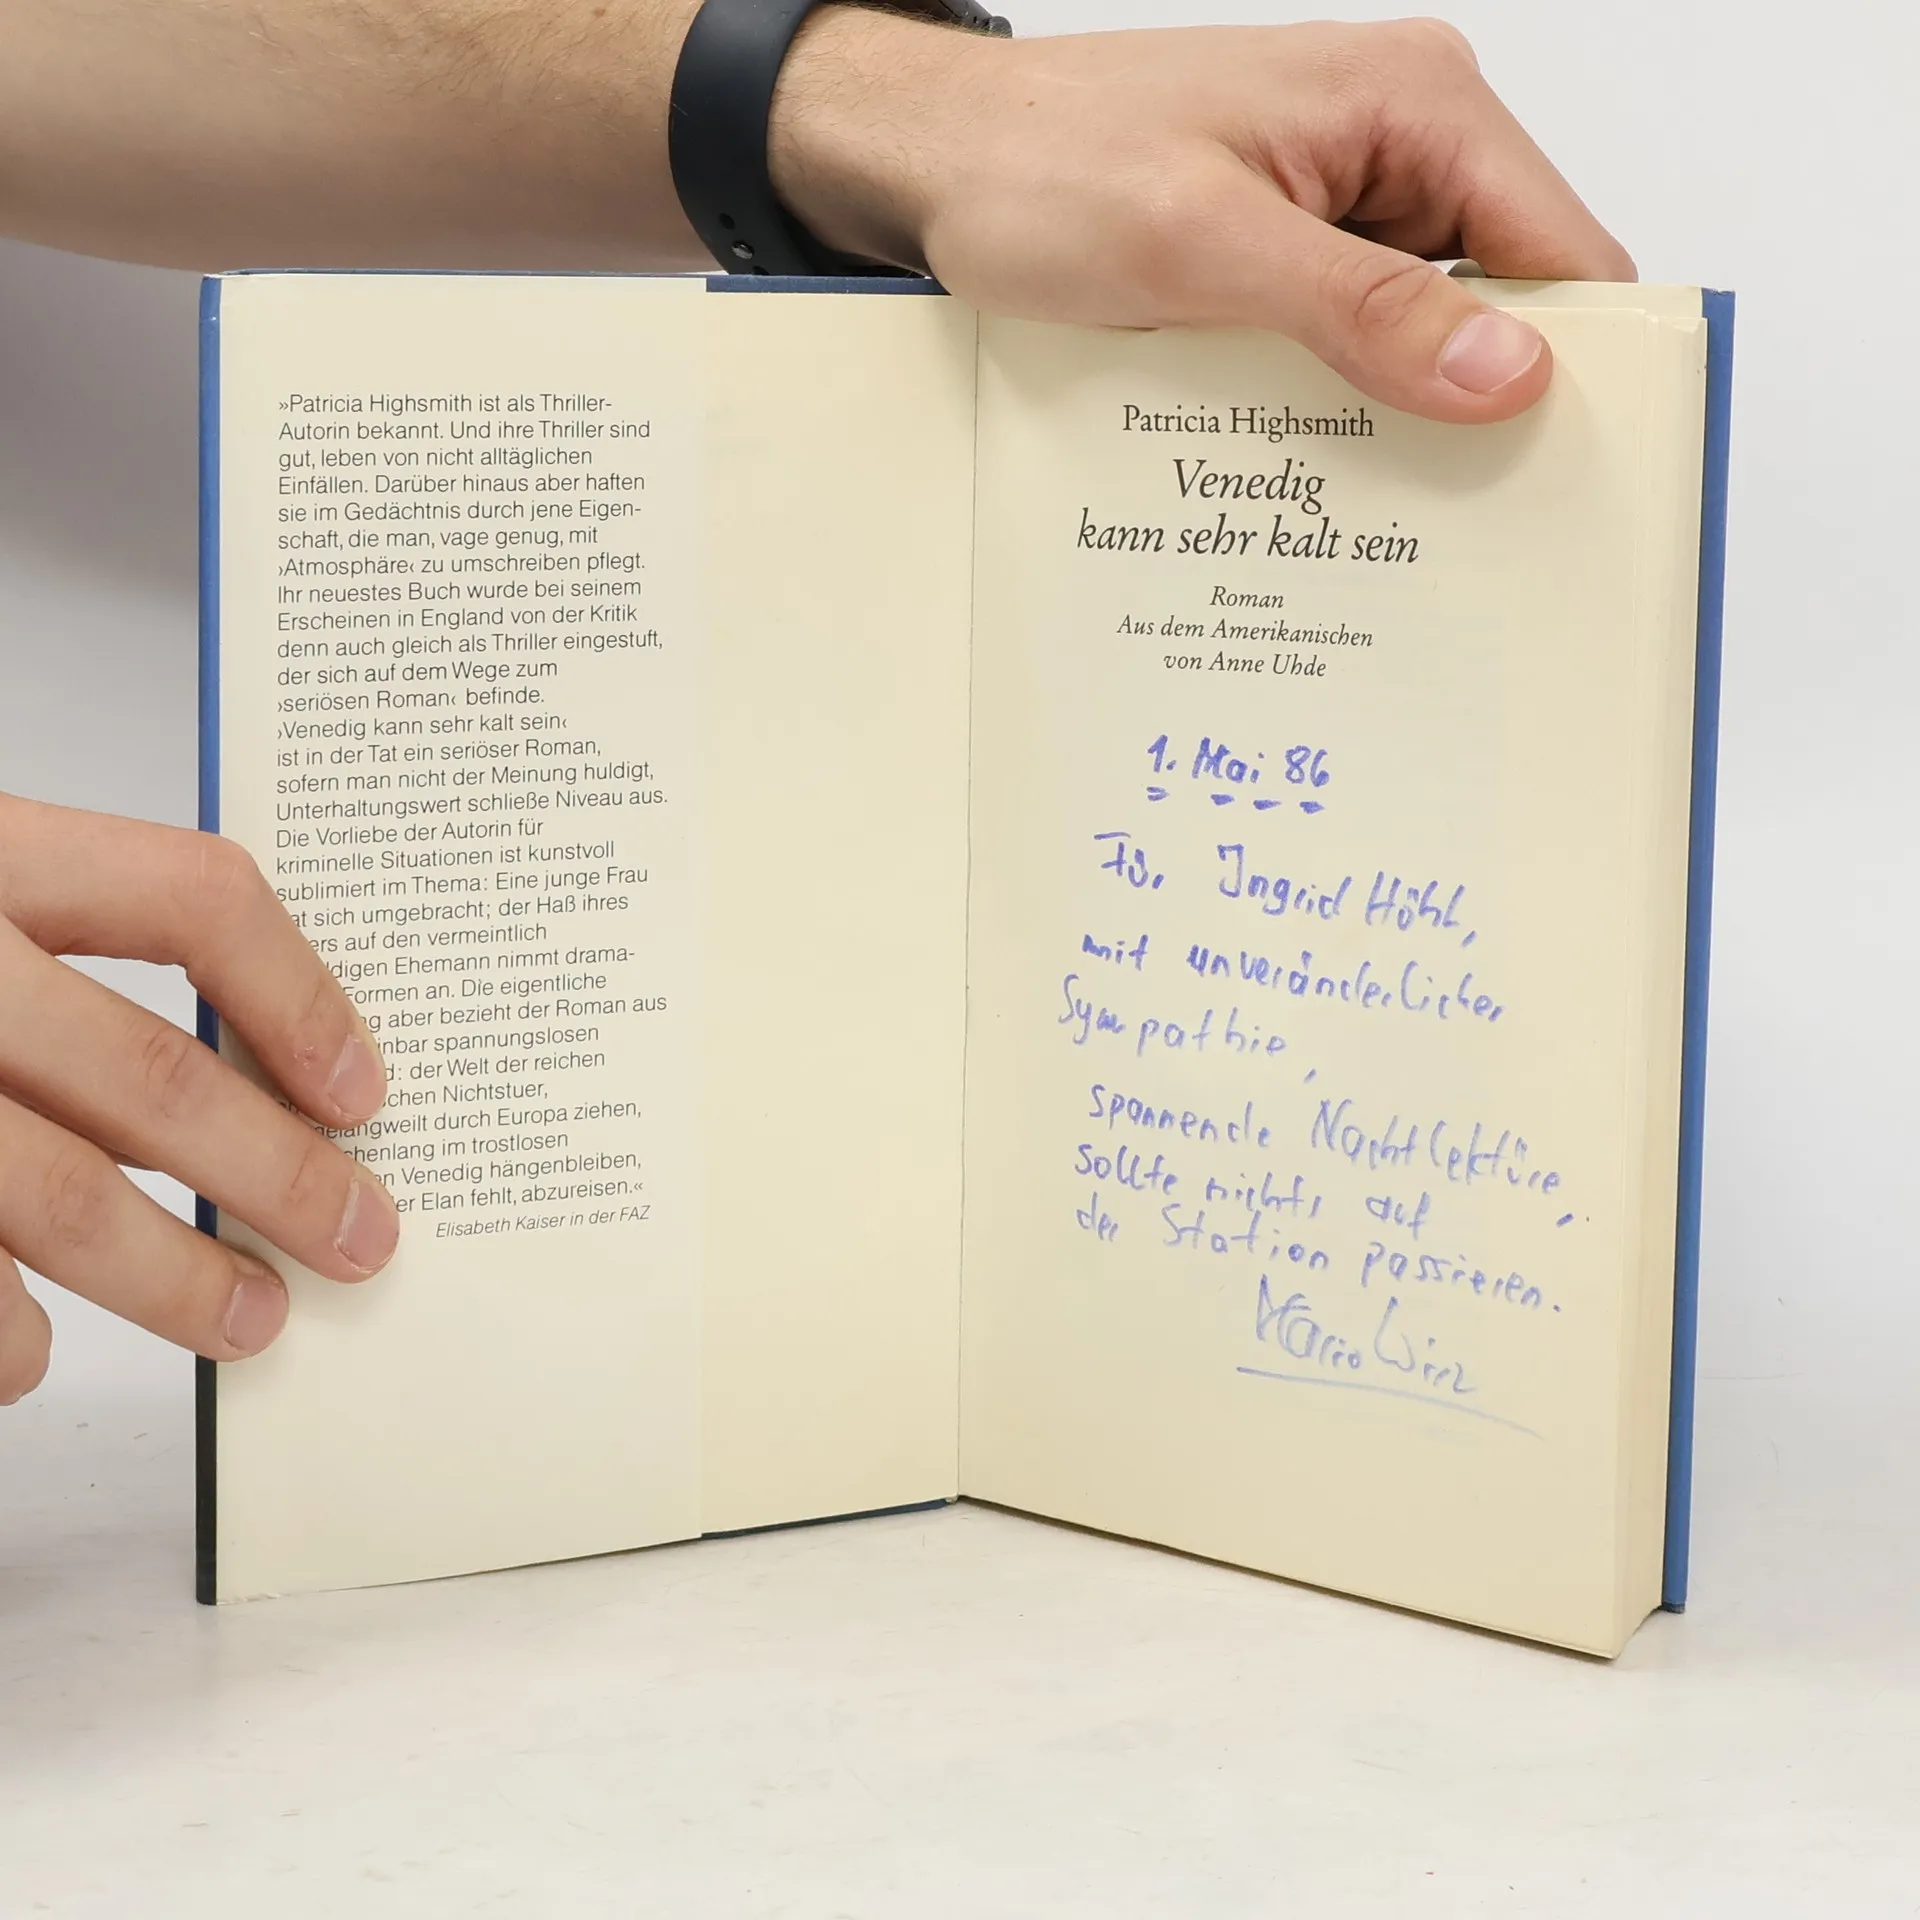 »Patricia Highsmith ist als Thriller-
Autorin bekannt. Und ihre Thriller sind
gut, leben von nicht alltäglichen
Einfällen. Darüber hinaus aber haften
sie im Gedächtnis durch jene Eigen-
schaft, die man, vage genug, mit
›Atmosphäre‹ zu umschreiben pflegt.
Ihr neuestes Buch wurde bei seinem
Erscheinen in England von der Kritik
denn auch gleich als Thriller eingestuft,
der sich auf dem Wege zum
›seriösen Roman‹ befinde.
›Venedig kann sehr kalt sein‹
ist in der Tat ein seriöser Roman,
sofern man nicht der Meinung huldigt,
Unterhaltungswert schließe Niveau aus.
Die Vorliebe der Autorin für
kriminelle Situationen ist kunstvoll
sublimiert im Thema: Eine junge Frau
at sich umgebracht; der Haß ihres
ers auf den vermeintlich
ldigen Ehemann nimmt drama-
Formen an. Die eigentliche
ng aber bezieht der Roman aus
inbar spannungslosen
d: der Welt der reichen
schen Nichtstuer,
gelangweilt durch Europa ziehen,
chenlang im trostlosen
en Venedig hängenbleiben,
er Elan fehlt, abzureisen.«
Elisabeth Kaiser in der FAZ
Patricia Highsmith
Venedig
kann sehr kalt sein
Roman
Aus dem Amerikanischen
von Anne Uhde
1. Mai 86
Für Ingrid Höhl,
mit unveränderlicher
Sympathie,
spannende Nachtlektüre,
sollte nichts auf
der Station passieren.
Mario Wirz